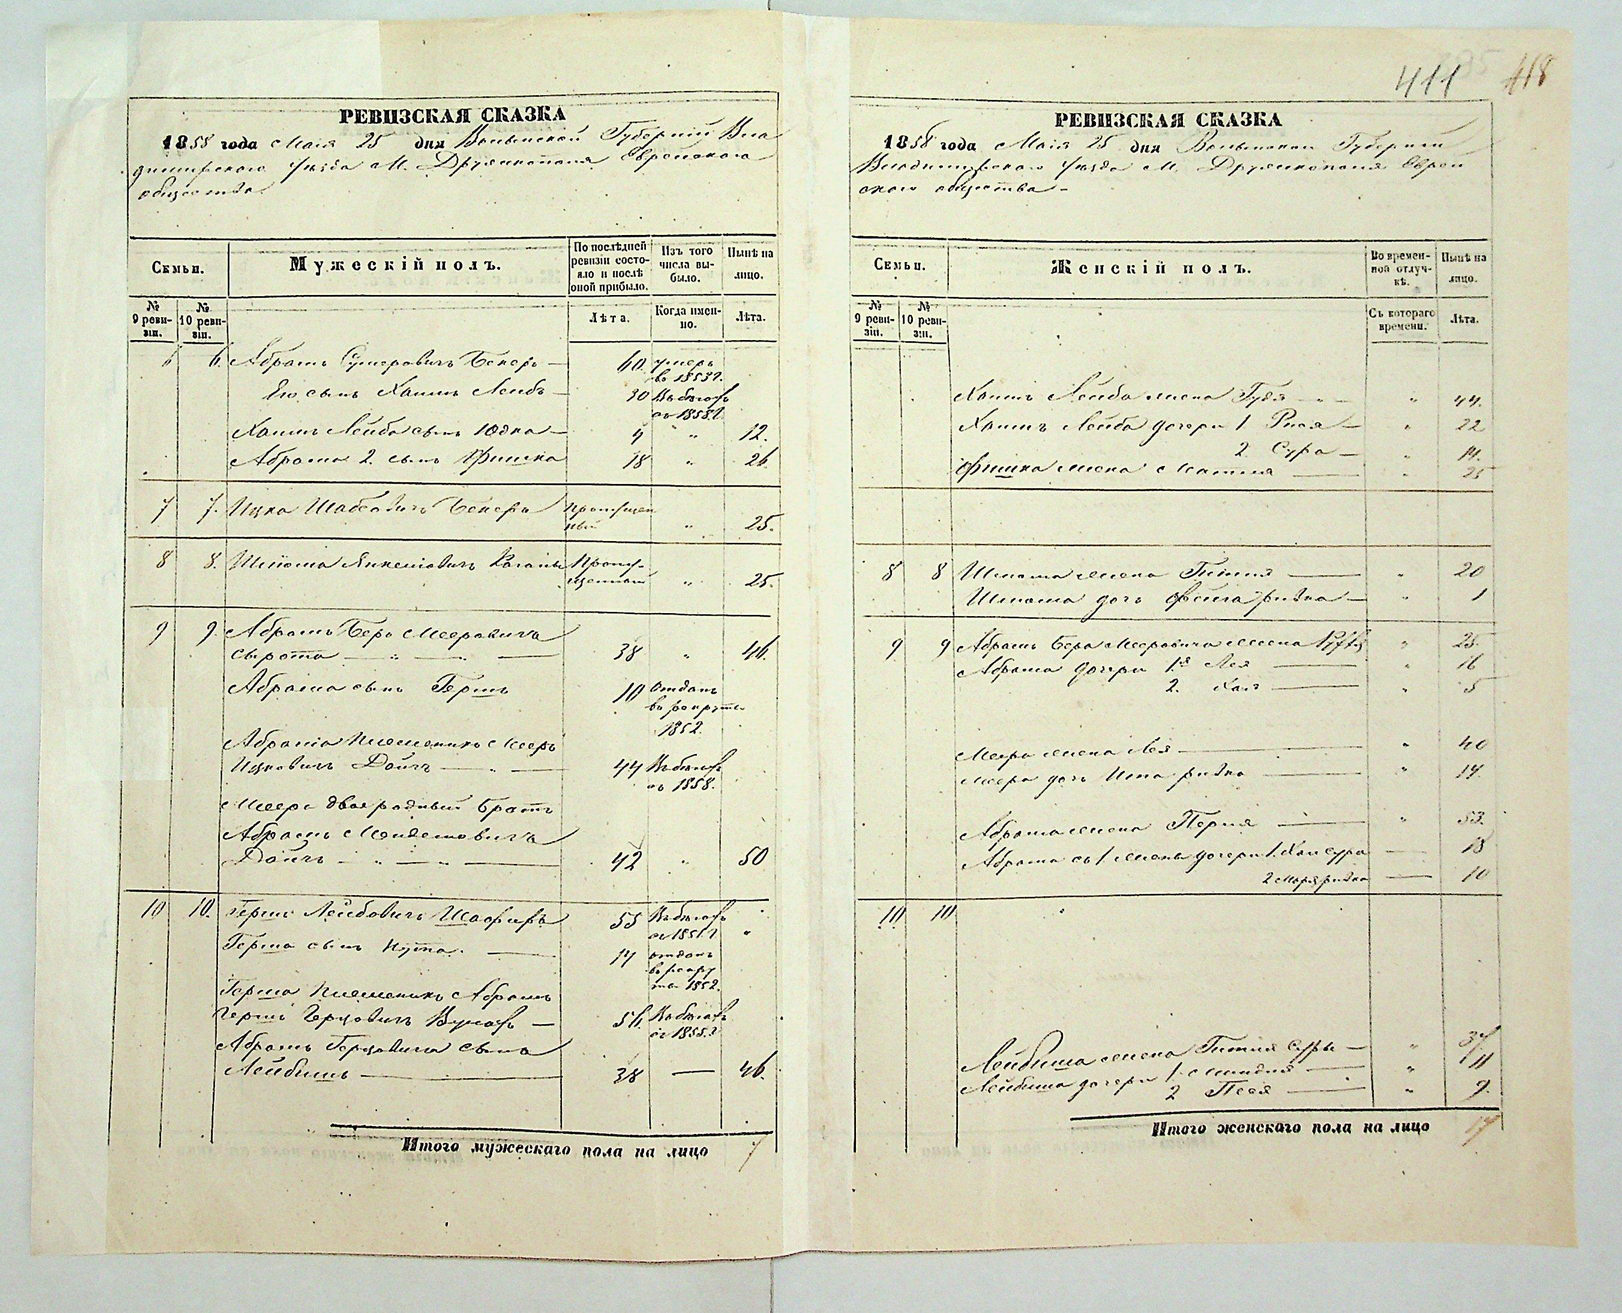 411 418
РЕВИЗСКАЯ СКАЗКА
1858 года Маія 25 дня Волынской Губерніи Вла
димирскаго уѣзда М. Дружкополя Еврейскаго
общества
Семьи.
Мужескій полъ.
По послѣдней ревизіи состояло и послѣ оной прибыло.
Изъ того числа выбыло.
Нынѣ на лицо.
№ 9 ревизіи.
№ 10 ревизіи.
Лѣта.
Когда именно.
Лѣта.
6 6. Абрамъ Бекеръ — 60. умеръ
въ 1853 г.
Его сынъ Хаимъ Лейбъ — 30 въ бѣгахъ
съ 1858 г.
Хаимъ Лейба сынъ Юдка — 4 " 12.
Абрама 2. сынъ Фишка 18 " 26.
7 7. Ицка Шабсовичъ Бекеръ пропущен
ный " 25.
8 8. Шлиома Янкелювичъ пропу-
щенный " 25.
9 9. Абрамъ Беръ Мееровичъ
Сирота — " — 38 " 46.
Абрама сынъ Гершъ 10 отданъ
въ рекруты
1852.
Абрама племенникъ Мееръ
Ицковичъ Дойчъ — " — 44 въ бѣгахъ
съ 1858.
Меера двоюродный братъ
Абрамъ Менделювичъ
Дойчъ — " — " — 42 " 50
10 10. Гершъ Лейбовичъ Шафиръ 55 въ бѣгахъ
съ 1851 г. "
Герша сынъ Нута. — 14 отданъ
въ рекру
ты 1852.
Герша племенникъ Абрамъ
Гершъ Герцовичъ — 56. въ бѣгахъ
съ 1855 г.
Абрамъ Герцовича сынъ
Лейбишъ — 38 — 46.
Итого мужескаго пола на лицо 7
РЕВИЗСКАЯ СКАЗКА
1858 года Маія 25 дня Волынской Губерніи
Владимирскаго уѣзда М. Дружкополя Еврей
скаго общества —
Семьи.
Женскій полъ.
Во временной отлучкѣ.
Нынѣ на лицо.
№ 9 ревизіи.
№ 10 ревизіи.
Съ котораго времени.
Лѣта.
Хаимъ Лейба жена Гудя — " 44.
Хаимъ Лейба дочери 1 Рися — " 22
2 Сура — " 14.
Фишка жена — " 25
8 8 Шлиома жена Гитля — " 20
Шлиома дочь Фейга ривка — " 1
9 9 Абрамъ Бера Мееровича жена " 25
Абрама дочери 1я Лея — " 16
2. Хая — " 5
Меера жена Лея — " 40
Меера дочь ривка — " 14.
Абрама жена Перля — " 53.
Абрама съ 1 жены дочери 1. Хаи сура — 18
2 ривка — 10
10 10
Лейбиша жена Гитля Суры — " 37
Лейбиша дочери 1. — " 11
2 Песя — " 9.
Итого женскаго пола на лицо 17